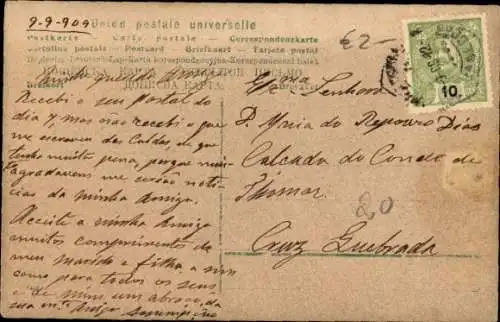 9-9-909
Union postale universelle
£2-
Postkarte Carte postale Correspondenzkarte
Postcard Briefkaart Tarjeta postal
Minha querida Amiga
Recebi o seu postal do
dia 7, mas não recebi o que
me escreveu das Caldas, de que
tenho muita pena, porque
agradaveis me serão noti-
cias da minha Amiga.
Acceite a minha Amiga
muitos comprimentos de
meu marido e filha e
como para todos os seus
e de mim, um abraço, da
sua Amiga
10
Senhora
D. Maria do Repouso Dias
Calçada do Conde de
Thomar
20
Cruz Quebrada